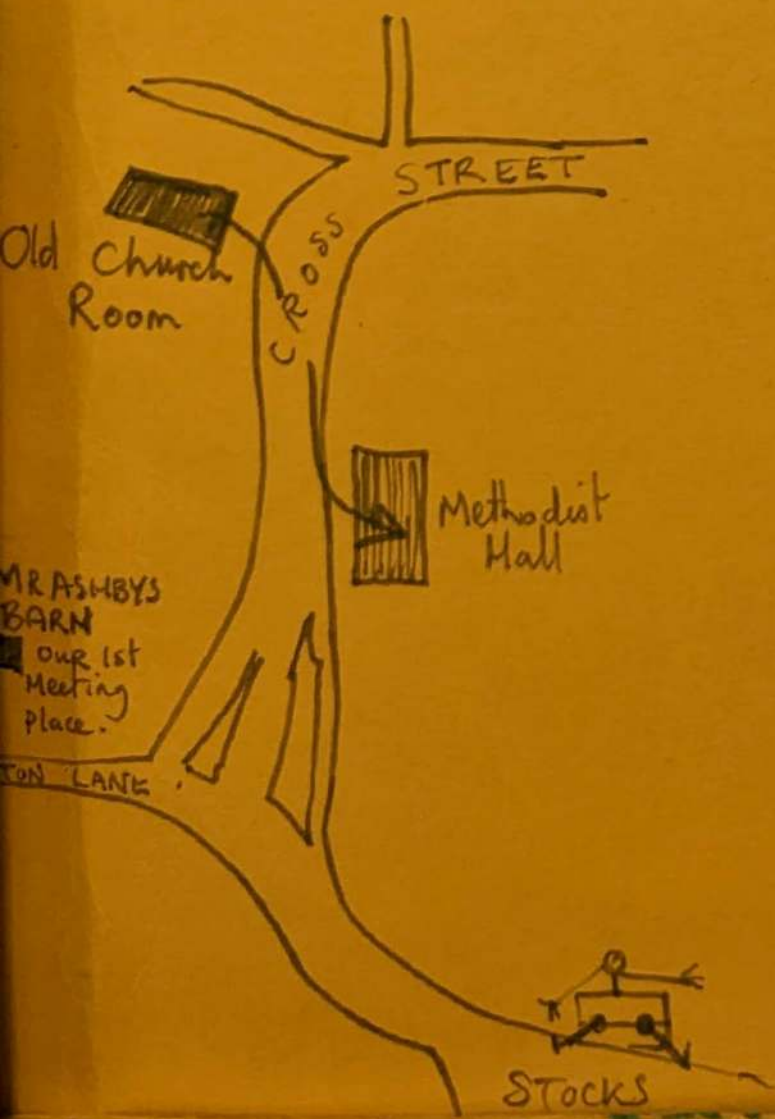 STREET
CROSS
Old Church
Room
Methodist
Hall
MR ASHBYS
BARN
OUR 1st
Meeting
Place.
TON LANE.
STOCKS